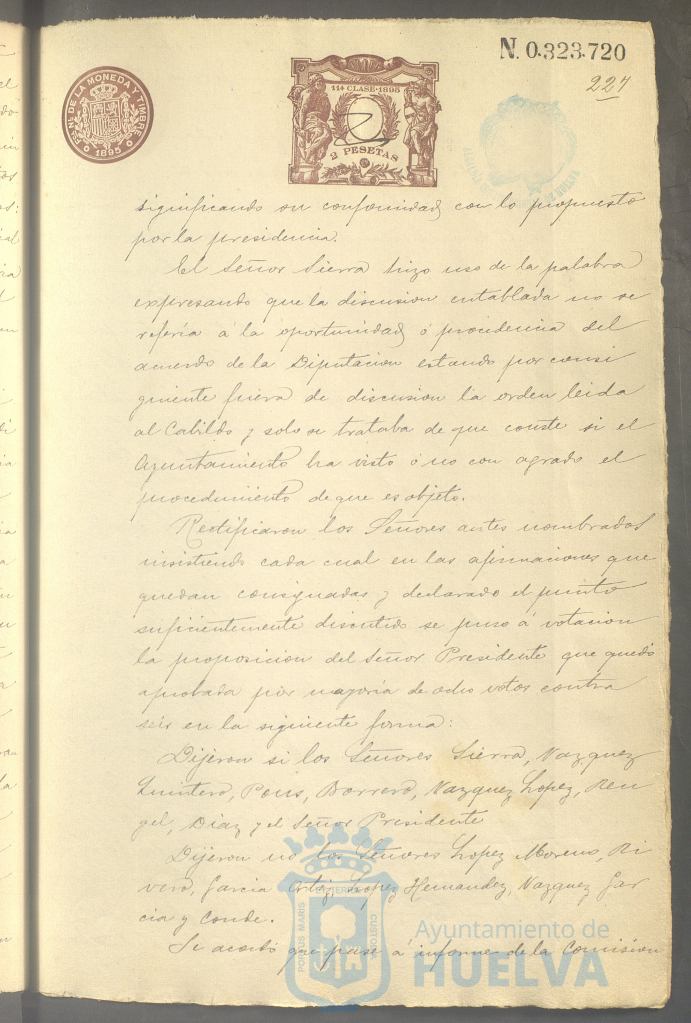 N. 0.323.720
227
FABCA NAL DE LA MONEDA Y TIMBRE
1895
11ª CLASE·1895
2 PESETAS
significando su conformidad con lo propuesto
por la presidencia.
El Señor Sierra hizo uso de la palabra
expresando que la discusion entablada no se
referia á la oportunidad ó procedencia del
acuerdo de la Diputacion estando por consi
guiente fuera de discusion la orden leida
al Cabildo y solo se trataba de que conste si el
Ayuntamiento ha visto ó no con agrado el
procedimiento de que es objeto.
Rectificaron los Señores antes nombrados
insistiendo cada cual en las afirmaciones que
quedan consignadas y declarado el punto
suficientemente discutido se puso á votacion
la proposicion del Señor Presidente que quedó
aprobada por mayoria de ocho votos contra
seis en la siguiente forma:
Dijeron si los Señores Sierra, Vazquez
Quintero, Pons, Borrero, Vazquez Lopez, Ren
gel, Diaz y el Señor Presidente
Dijeron no los Señores Lopez Moreno, Ri
vero, Garcia Ortiz, Lopez Hernandez, Vazquez Gar
cia y Conde.
Se acordó que pase á informe de la Comision
PORTUS MARIS ET TERRAE CUSTODIA
Ayuntamiento de
HUELVA